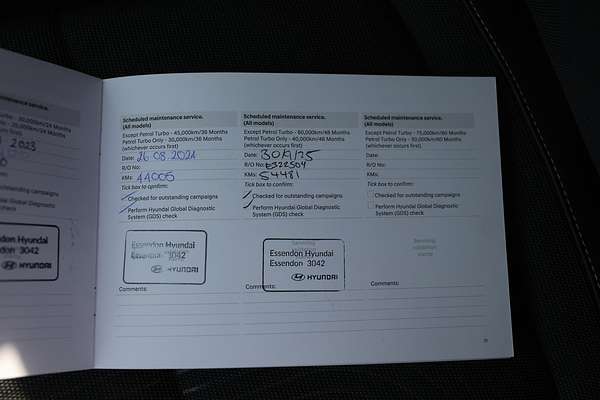 Scheduled maintenance service.
(All models)
Except Petrol Turbo - 45,000km/36 Months
Petrol Turbo Only - 30,000km/36 Months
(whichever occurs first)
Date: 26.08.2024
R/O No:
KMs: 44005
Tick box to confirm:
Checked for outstanding campaigns
Perform Hyundai Global Diagnostic
System (GDS) check
Essendon Hyundai
Essendon 3042
HYUNDAI
Comments:
Scheduled maintenance service.
(All models)
Except Petrol Turbo - 60,000km/48 Months
Petrol Turbo Only - 40,000km/48 Months
(whichever occurs first)
Date: 30/9/25
R/O No: E322504
KMs: 54481
Tick box to confirm:
Checked for outstanding campaigns
Perform Hyundai Global Diagnostic
System (GDS) check
Servicing
Essendon Hyundai
Essendon 3042
HYUNDAI
Comments:
Scheduled maintenance service.
(All models)
Except Petrol Turbo - 75,000km/60 Months
Petrol Turbo Only - 50,000km/60 Months
(whichever occurs first)
Date:
R/O No:
KMs:
Tick box to confirm:
Checked for outstanding campaigns
Perform Hyundai Global Diagnostic
System (GDS) check
Servicing
validation
stamp
Comments:
maintenance service.
(whichever occurs first)
2023
outstanding campaigns
Hyundai Global Diagnostic
(GDS) check
Essendon Hyundai
Essendon 3042
HYUNDAI